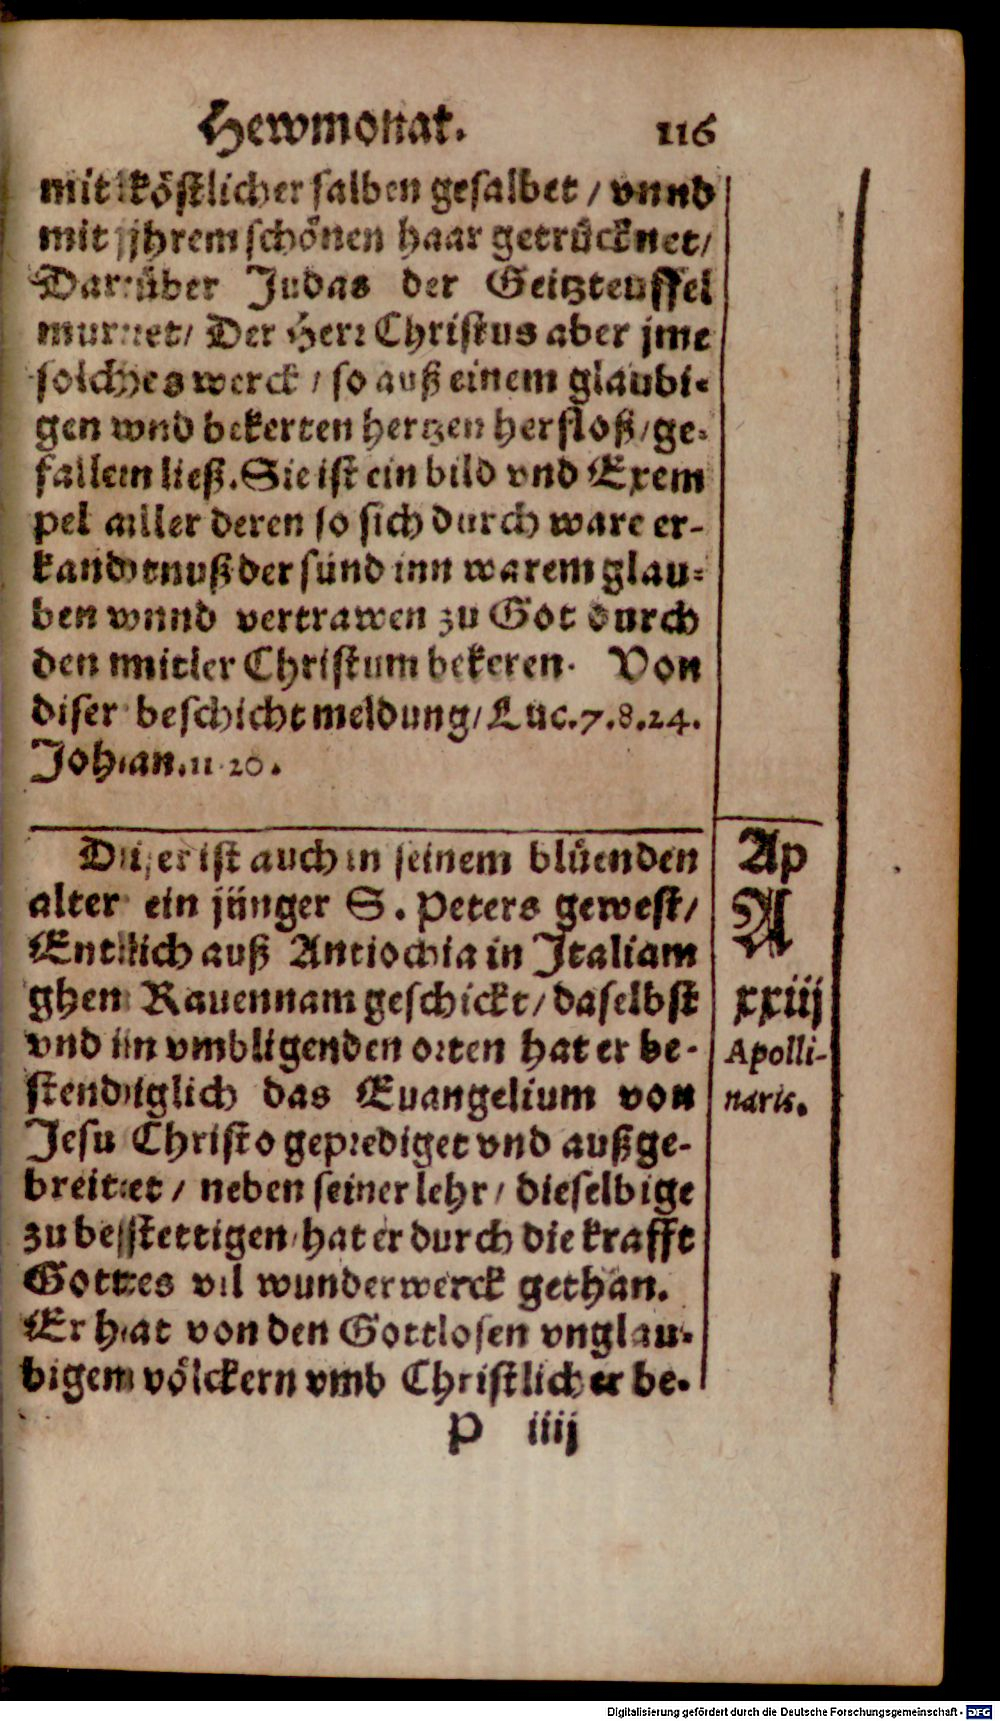 Hewmonat. 116
mit köstlicher salben gesalbet / vnnd
mit jhrem schönen haar getrücknet /
Darüber Judas der Geitzteuffel
murret / Der Herr Christus aber jme
solches werck / so auß einem glaubi-
gen vnd bekerten hertzen herfloß / ge-
fallen ließ. Sie ist ein bild vnd Exem
pel aller deren so sich durch ware er-
kandtnuß der sünd inn warem glau-
ben vnnd vertrawen zu Got durch
den mitler Christum bekeren. Von
diser beschicht meldung / Luc. 7. 8. 24.
Johan. 11 20.
Diser ist auch in seinem blüenden
alter ein jünger S. Peters gewest /
Entlich auß Antiochia in Italiam
ghen Rauennam geschickt / daselbst
vnd in vmbligenden orten hat er be-
stendiglich das Euangelium von
Jesu Christo geprediget vnd außge-
breitet / neben seiner lehr / dieselbige
zu bestettigen / hat er durch die krafft
Gottes vil wunderwerck gethan.
Er hat von den Gottlosen vnglau-
bigen völckern vmb Christlicher be-
Ap
A
xxiij
Apolli-
naris.
P iiij
Digitalisierung gefördert durch die Deutsche Forschungsgemeinschaft - DFG